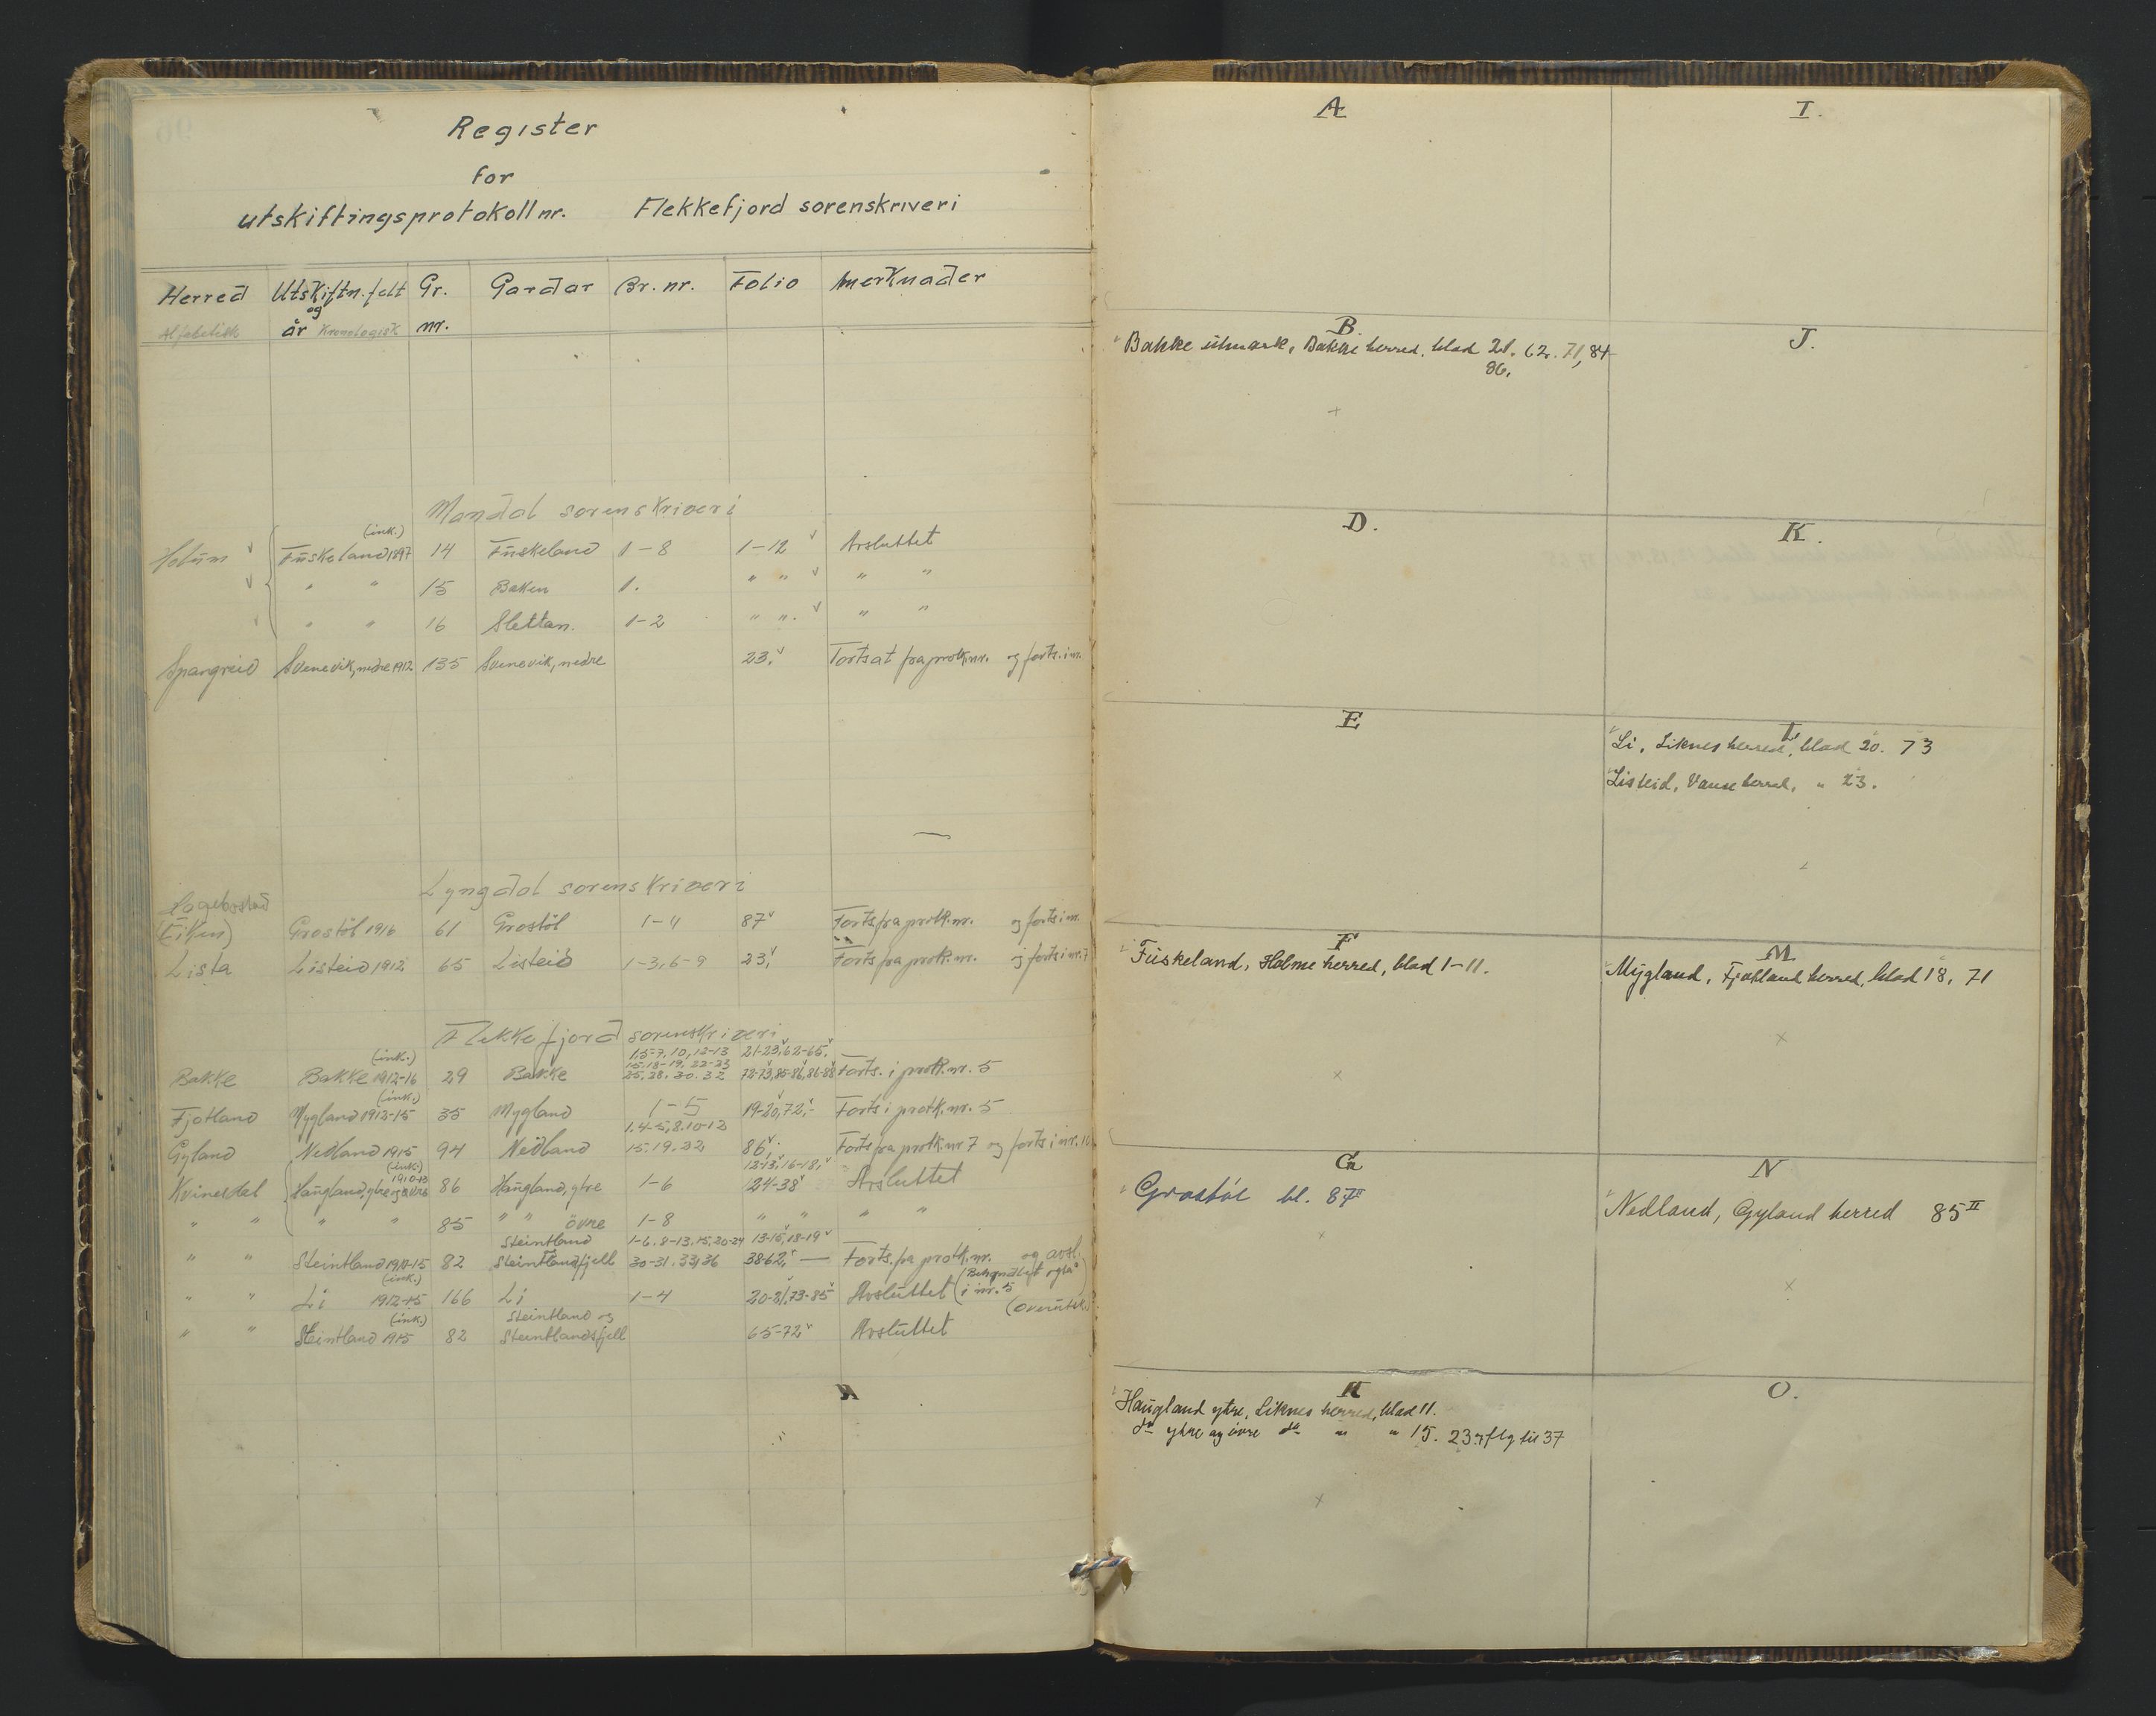 Register
for
utskiftingsprotokoll nr. Flekkefjord sorenskriveri
Herred Utskiftn.felt Gr. Gardar Br. nr. Folio Merknader
Alfabetisk og år Kronologisk nr.
Mandal sorenskriveri
(ink.)
Holum Fuskeland 1897 14 Fuskeland 1-8 1-12 Avsluttet
" " 15 Baken 1. " " " "
" " 16 Slettan. 1-2 " " " "
Spangreid Svenevik, nedre 1912 135 Svenevik, nedre 23, Fortsat fra protk.nr. og forts. i nr.
Lyngdal sorenskriveri
(Eiken) Grostöl 1916 61 Grostöl 1-4 87 Forts fra protk.nr. og forts i nr.
Lista Listeid 1912 65 Listeid 1-3, 6-9 23, Forts fra protk.nr. og forts i nr. 7
Flekkefjord sorenskriveri
(ink.) 1.5-7, 10, 12-13 21-23, 62-65,
15.18-19, 22-23
Bakke Bakke 1912-16 29 Bakke 25, 28. 30. 32 72-73, 85-86, 86-88 Forts. i protk. nr. 5
(ink.)
Fjotland Mygland 1912-15 35 Mygland 1-5 19-20, 72,- Forts i protk. nr. 5
1.4-5, 8.10-12
Gyland Nedland 1915 94 Nedland 15.19.22 86, Forts fra protk.nr 7 og forts i nr. 10
(ink.) 1910-13 12-13, 16-18,
Kvinesdal Haugland, ytre og övre 86 Haugland, ytre 1-6 24-38 Avsluttet
" " " " 85 " " övre 1-8 " " " "
Steintland 1-6. 8-13. 15, 20-24 13-15, 18-19
" " Steintland 1910-15 82 Steintlandfjell 30-31. 33, 36 38-62, — Forts. fra protk. nr. og avsl.
(ink.) (Behandlet også
" " Li 1912-15 166 Li 1-4 20-21, 73-85 Avsluttet i nr. 5
(ink.) Steintland og (Overutsk.)
" " Steintland 1915 82 Steintlandsfjell 65-72 Avsluttet
A
B.
Bakke utmark, Bakke herred, blad 21. 62. 71, 84
86.
D.
E
F
Fuskeland, Holme herred, blad 1-11.
G
Grostöl bl. 87 II
H
Haugland ytre, Liknes herred, blad 11.
do ytre og övre do " " 15. 23 og flg til 37
I.
J.
K.
L
Li, Liknes herred, blad 20. 73
Listeid, Vanse herred, " 23.
M
Mygland, Fjotland herred, blad 18, 71
N
Nedland, Gyland herred 85 II
O.